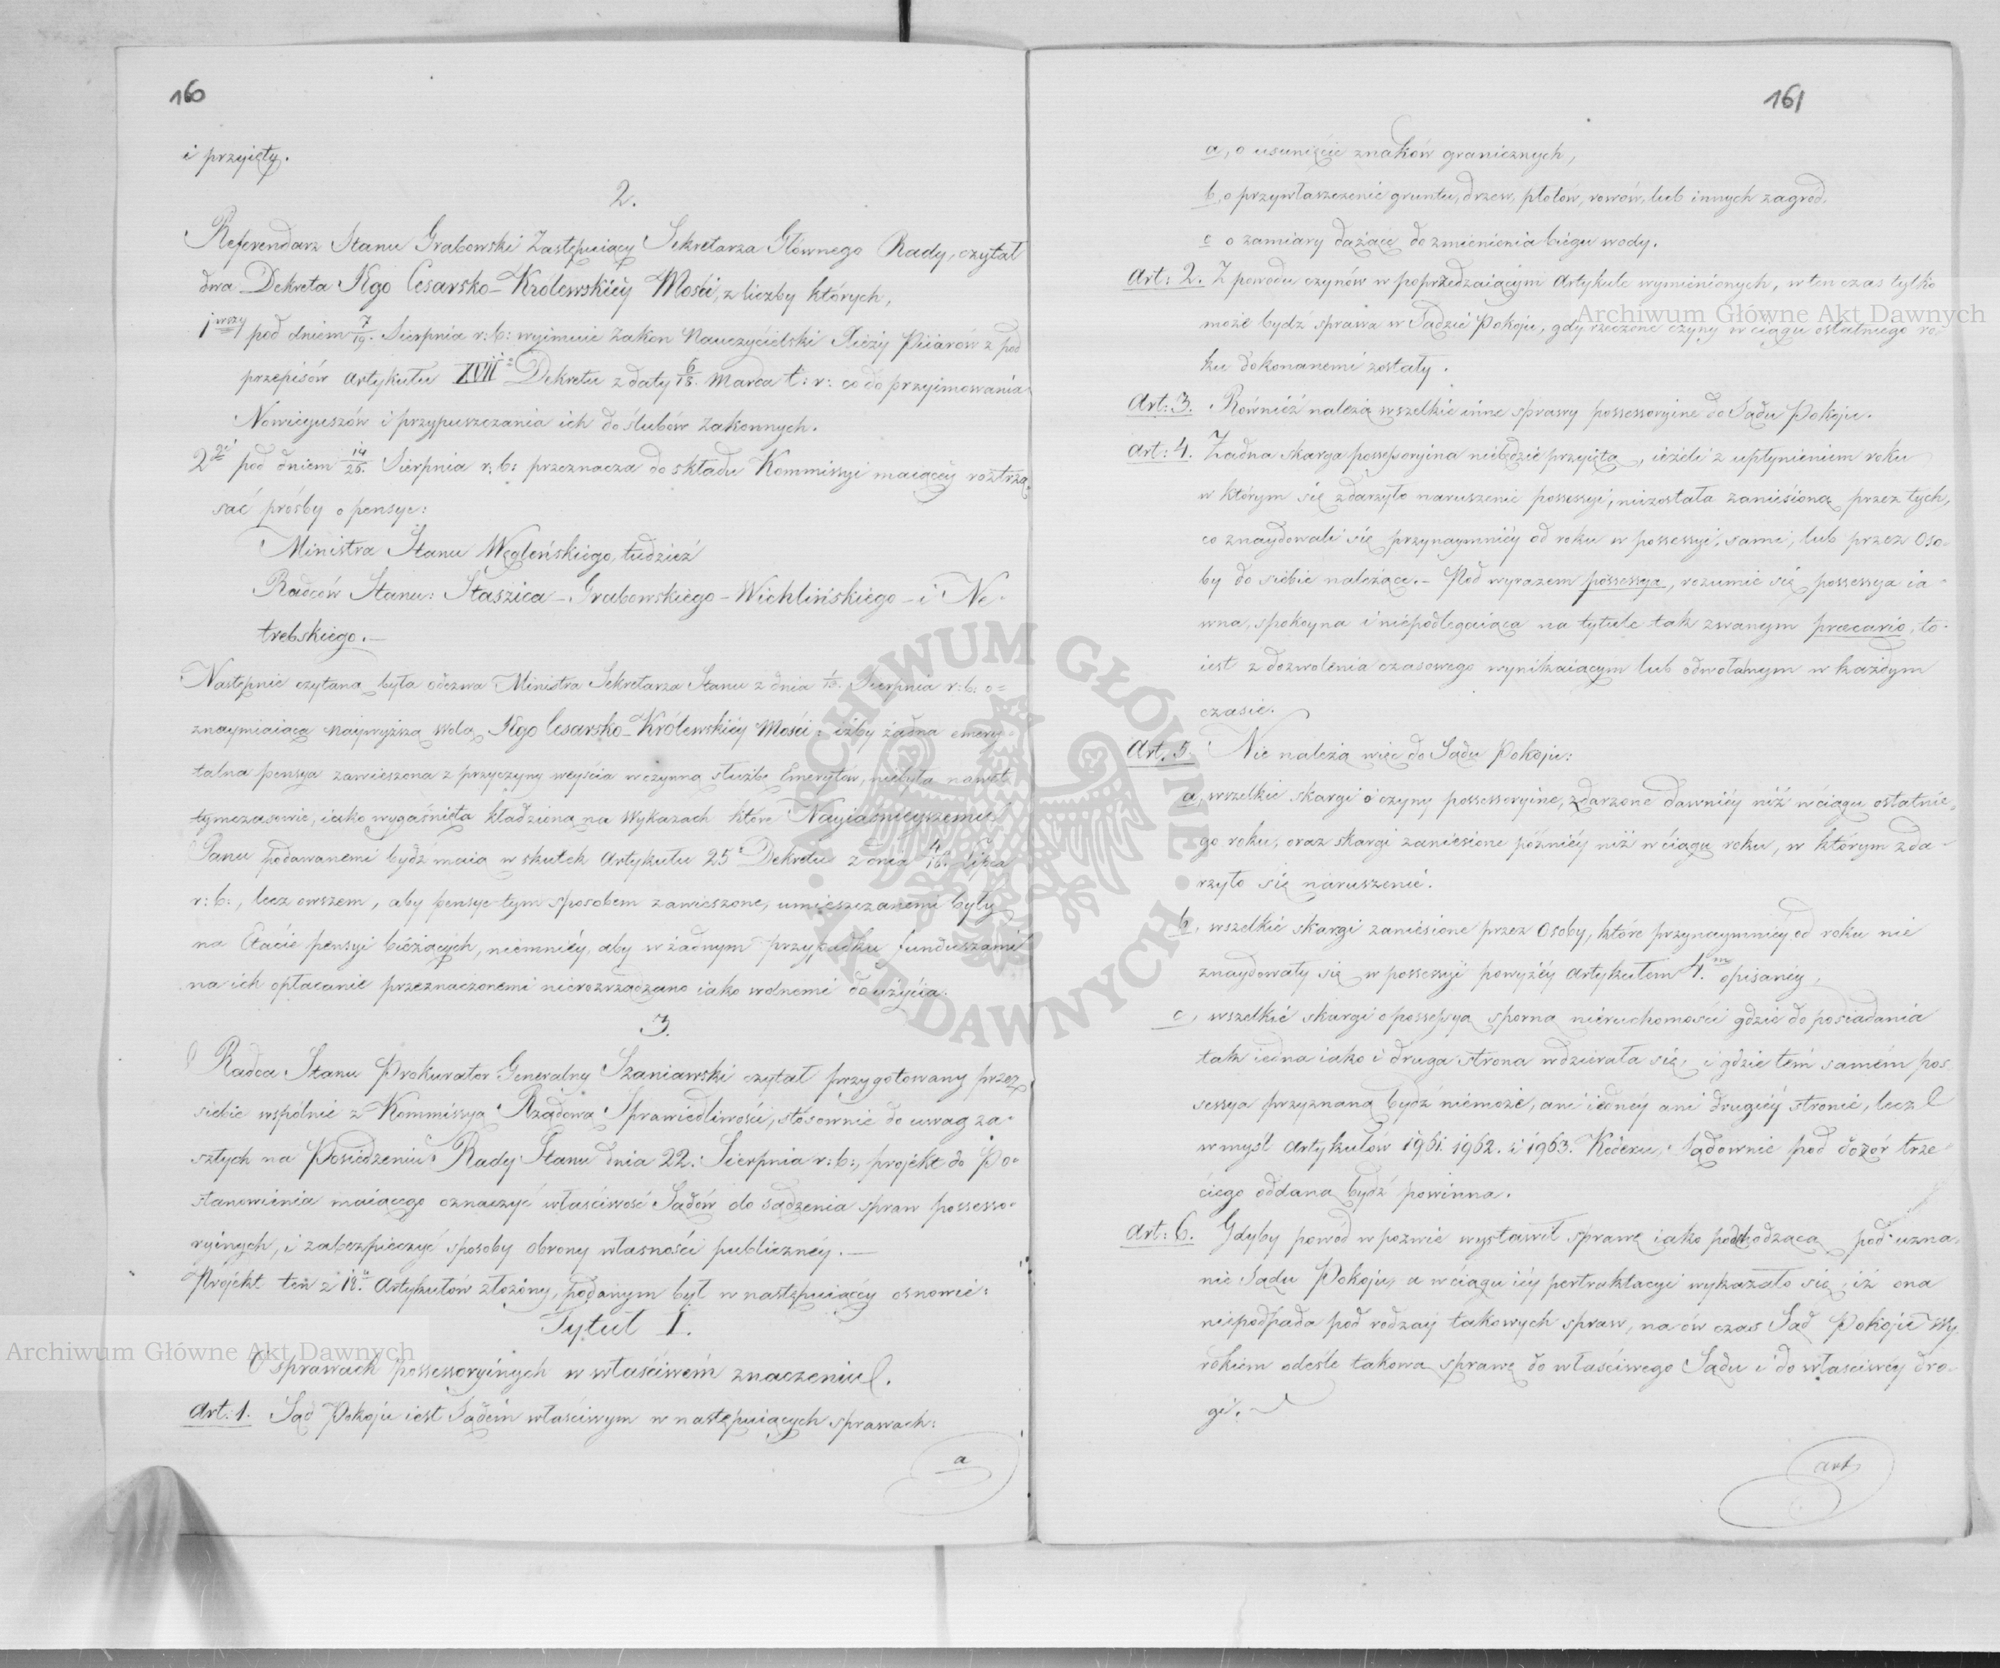 160
i przyięty.
2.
Referendarz Stanu Grabowski Zastępuiący Sekretarza Głównego Rady, czytał
dwa Dekreta NJgo Cesarsko-Królewskiéy Mości, z liczby których,
1wszy pod dniem 7/19. Sierpnia r: b: wyimuie Zakon Nauczycielski Xięży Piiarów z pod
przepisów Artykułu XVII: Dekretu z daty 6/18. Marca t: r: co do przyimowania
Nowicyuszów i przypuszczania ich do ślubów Zakonnych.
2gi pod dniem 14/26. Sierpnia r: b: przeznacza do składu Kommissyi maiącéy roztrzą,
sać prośby o pensye:
Ministra Stanu Węgleńskiego, tudzież
Radców Stanu: Staszica - Grabowskiego - Wichlińskiego - i Ne-
trebskiego. —
Następnie czytana była odezwa Ministra Sekretarza Stanu z dnia Sierpnia r: b: o=
znaymiaiąca naywyższą wolą NJgo Cesarsko-Królewskiéy Mości: iżby żadna emery
talna pensya zawieszona z przyczyny weyścia w czynną służbę Emerytów, niebyła nawet
tymczasowie, iako wygaśnięta kładzioną na Wykazach które Nayiaśnieyszemu
Panu podawanemi bydź maią w skutek Artykułu 25° Dekretu z dnia 4/16. Lipca
r: b:, lecz owszem, aby pensye tym sposobem zawieszone, umieszczanemi były
na Etacie pensyi bieżących, niemniéy, aby w żadnym przypadku funduszami
na ich opłacanie przeznaczonemi nierozrządzano iako wolnemi do użycia.
3.
Radca Stanu Prokurator Generalny Szaniawski czytał przygotowany przez
siebie wspólnie z Kommissyą Rządową Sprawiedliwości, stósownie do uwag za-
szłych na Posiedzeniu Rady Stanu dnia 22. Sierpnia r: b:, projekt do Po-
stanowienia maiącego oznaczyć właściwość Sądów do sądzenia spraw possesso-
ryinych, i zabezpieczyć sposoby obrony własności publicznéy. —
Projekt ten z 18u Artykułów złożony, podanym był w następuiącéy osnowie:
Tytuł I.
O sprawach possessoryinych w właściwém znaczeniu.
Art: 1. Sąd Pokoju iest Sądem właściwym w następuiących sprawach:
a
161
a, o usunięcie znaków granicznych,
b, o przywłaszczenie gruntu, drzew, płotów, rowów, lub innych zagród.
c o zamiary dążące do zmienienia biegu wody.
Art: 2. Z powodu czynów w poprzedzaiącym Artykule wymienionych, w ten czas tylko
może bydź sprawa w Sądzie Pokoju, gdy rzeczone czyny w ciągu ostatniego ro-
ku dokonanemi zostały.
Art: 3. Również należą wszelkie inne sprawy possessoryine do Sądu Pokoju.
Art: 4. Żadna skarga possessoryina niebędzie przyięta, ieżeli z upłynieniem roku
w którym się zdarzyło naruszenie possessyi, niezostała zaniesioną przez tych,
co znaydowali się przynaymniéy od roku w possessyi, sami, lub przez Oso-
by do siebie należące. - Pod wyrazem possessya, rozumie się possessya ia-
wna, spokoyna i niepodlegaiąca na tytule tak zwanym precario, to-
iest z dozwolenia czasowego wynikaiącym lub odwołalnym w każdym
czasie.
Art. 5. Nie należą więc do Sądu Pokoju:
a, wszelkie skargi o czyny possessoryine, zdarzone dawniéy niż w ciągu ostatnie,
go roku, oraz skargi zaniesione późniéy niż w ciągu roku, w którym zda-
rzyło się naruszenie.
b, wszelkie skargi zaniesione przez Osoby, które przynaymniéy od roku nie
znaydowały się w possessyi powyżéy Artykułem 4m opisanéy,
c, wszelkie skargi o possessyą sporną nieruchomości gdzie do posiadania
tak iedna iako i druga strona wdzierała się, i gdzie tém samém pos
sessya przyznaną bydź niemoże, ani iednéy ani drugiéy stronie, lecz
w myśl Artykułów 1961. 1962. i 1963. Kodexu, Sądownie pod dozór trze-
ciego oddana bydź powinna.
Art: 6. Gdyby powód w pozwie wystawił sprawę iako podchodzącą pod uzna-
nie Sądu Pokoju, a w ciągu iéy pertraktacyi wykazało się, iż ona
niepodpada pod rodzay takowych spraw, na ów czas Sąd Pokoju Wy,
rokiem odeśle takową sprawę do właściwego Sądu i do właściwéy dro-
gi. —
Art
Archiwum Główne Akt Dawnych
Archiwum Główne Akt Dawnych
ARCHIWUM GŁÓWNE AKT DAWNYCH